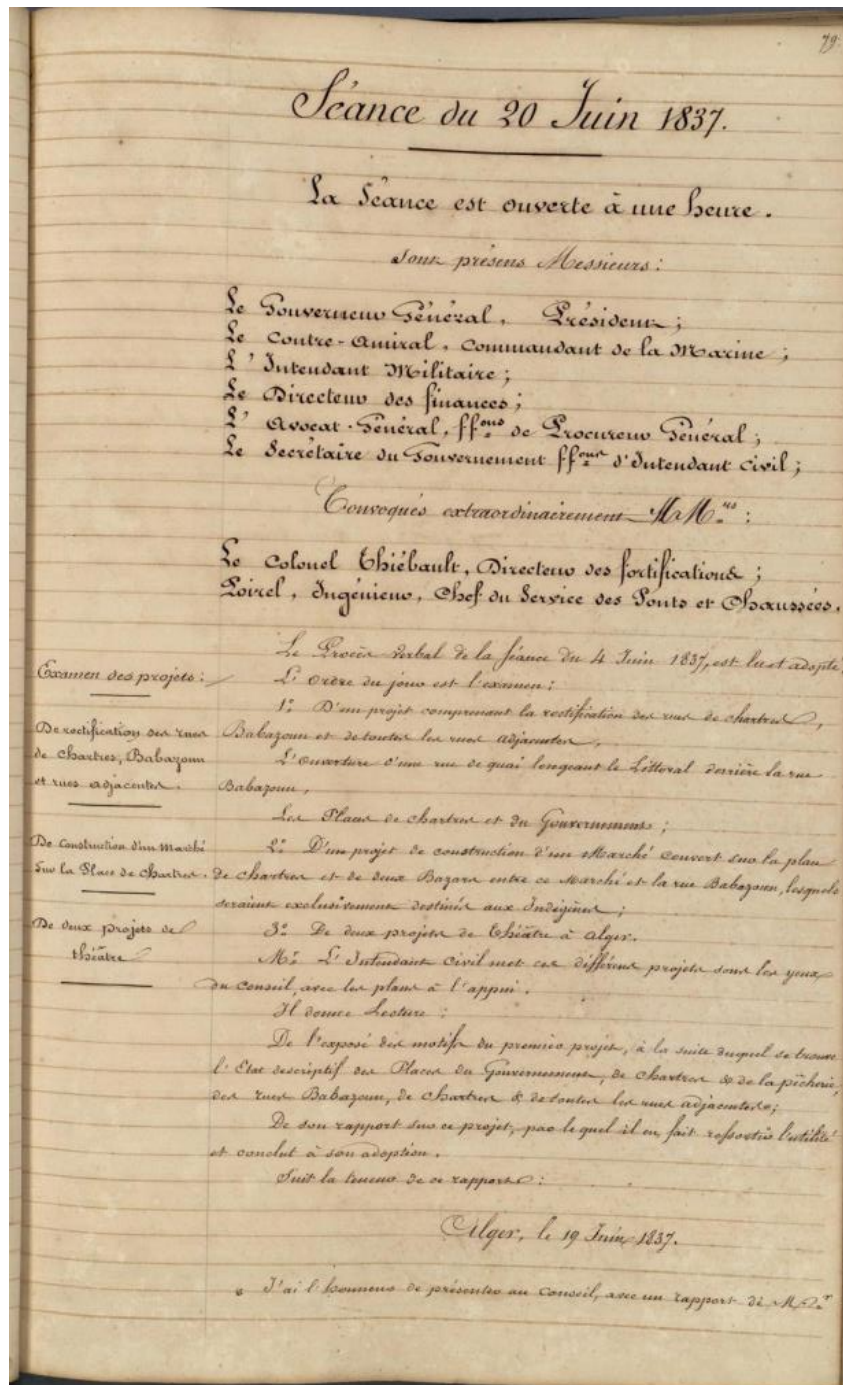 79.
Séance du 20 Juin 1837.
La Séance est ouverte à une heure.
Sont présens Messieurs :
Le Gouverneur Général, Président ;
Le Contre-Amiral, Commandant de la Marine ;
L'Intendant Militaire ;
Le Directeur des finances ;
L'Avocat-Général, ffons de Procureur Général ;
Le Secrétaire du Gouvernement ffons d'Intendant civil ;
Convoqués extraordinairement MM.rs :
Le Colonel Thiébault, Directeur des fortifications ;
Poirel, Ingénieur, Chef du Service des Ponts et Chaussées.
Le Procès verbal de la Séance du 4 Juin 1837, est lu et adopté.
Examen des projets :
L'ordre du jour est l'examen :
1.° D'un projet comprenant la rectification des rues de chartres,
De rectification des rues
de Chartres, Babazoun
et rues adjacentes.
Babazoun et de toutes les rues adjacentes,
L'ouverture d'une rue de quai longeant le Littoral derrière la rue
Babazoun,
Les Places de chartres et du Gouvernement ;
De construction d'un marché
sur la Place de Chartres.
2.° D'un projet de construction d'un Marché couvert sur la place
de Chartres et de deux Bazars entre ce Marché et la rue Babazoun, lesquels
seraient exclusivement destinés aux Indigènes ;
De deux projets de
théâtre
3.° De deux projets de théâtre à alger.
M.r L'Intendant Civil met ces différens projets sous les yeux
du conseil, avec les plans à l'appui.
Il donne Lecture :
De l'exposé des motifs du premier projet, à la suite duquel se trouve
l'Etat descriptif des Places du Gouvernement, de Chartres & de la pêcherie,
des rues Babazoun, de Chartres & de toutes les rues adjacentes ;
De son rapport sur ce projet, par le quel il en fait ressortir l'utilité
et conclut à son adoption.
Suit la teneur de ce rapport :
Alger, le 19 Juin 1837.
« J'ai l'honneur de présenter au Conseil, avec un rapport de M.r